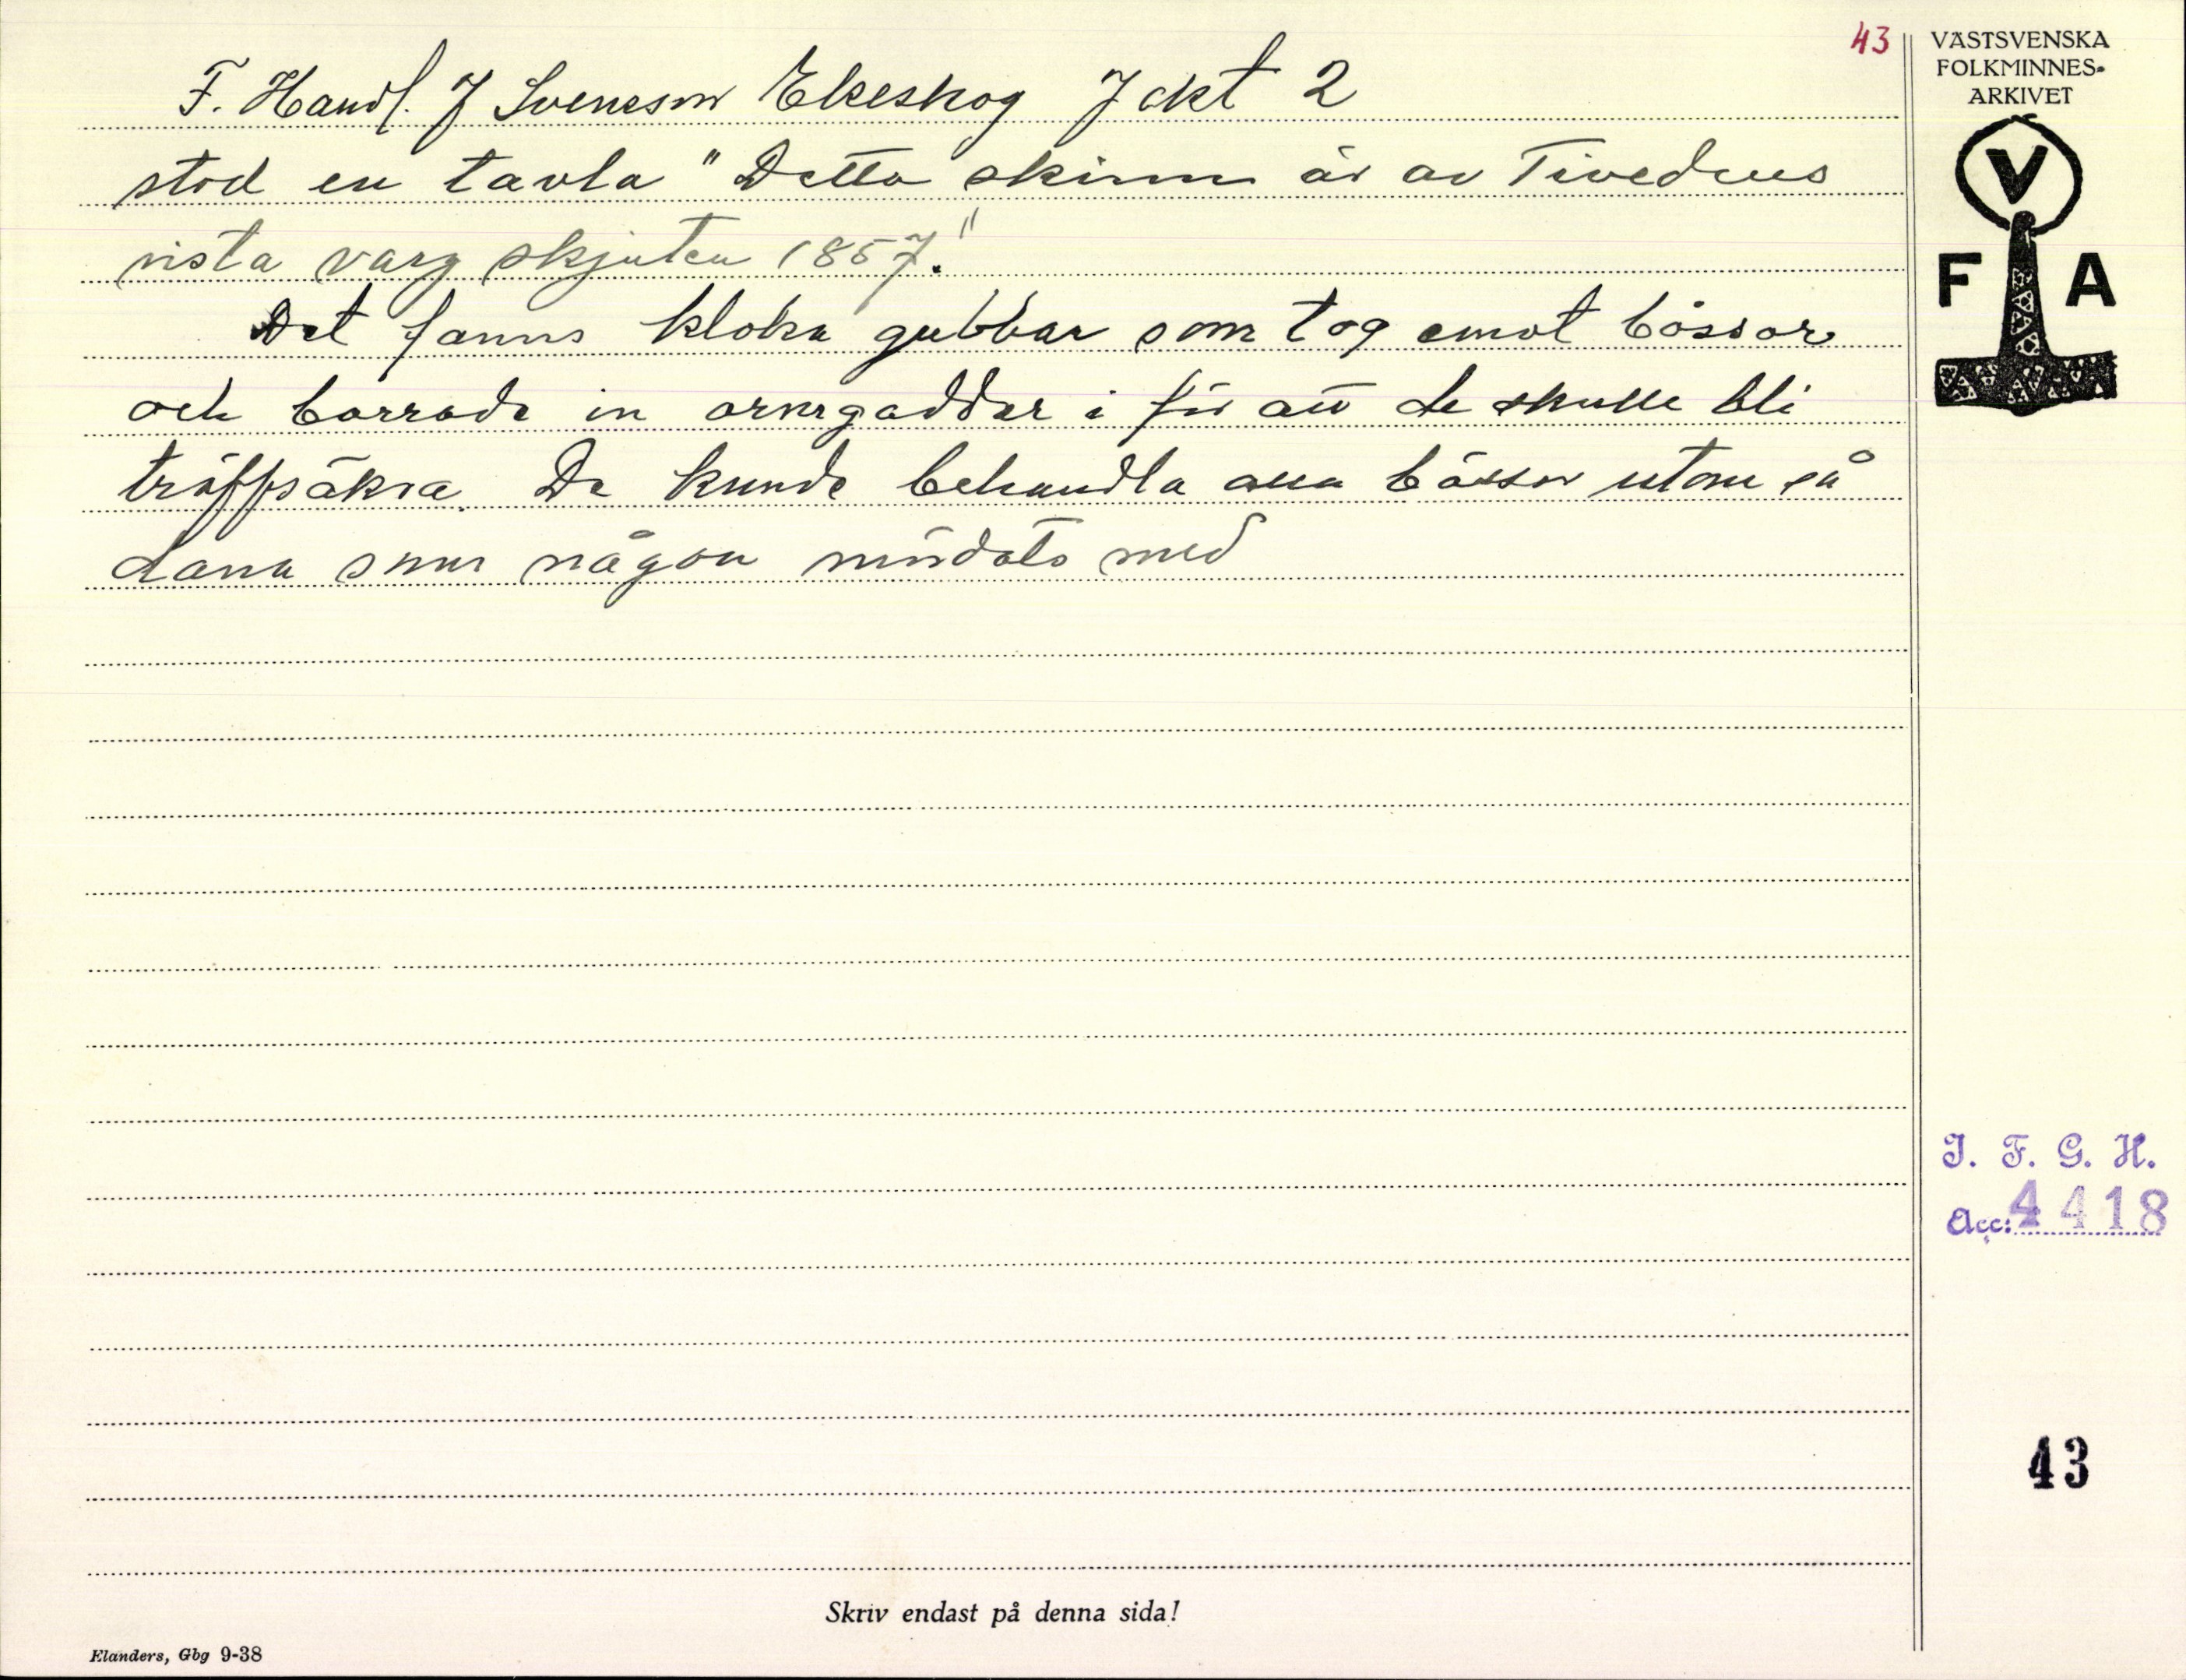 43
VÄSTSVENSKA
FOLKMINNES-
ARKIVET
V
F A
F. Handl. J Svensson Ekeskog Jakt 2
stod en tavla "Detta skinn är av Tivedens
sista varg skjuten 1857."
Det fanns kloka gubbar som tog emot bössor
och borrade in ormgaddar i för att de skulle bli
träffsäkra. De kunde behandla alla bössor utom så
dana som någon mördats med
I. F. G. H.
Acc: 4418
43
Skriv endast på denna sida!
Elanders, Gbg 9-38